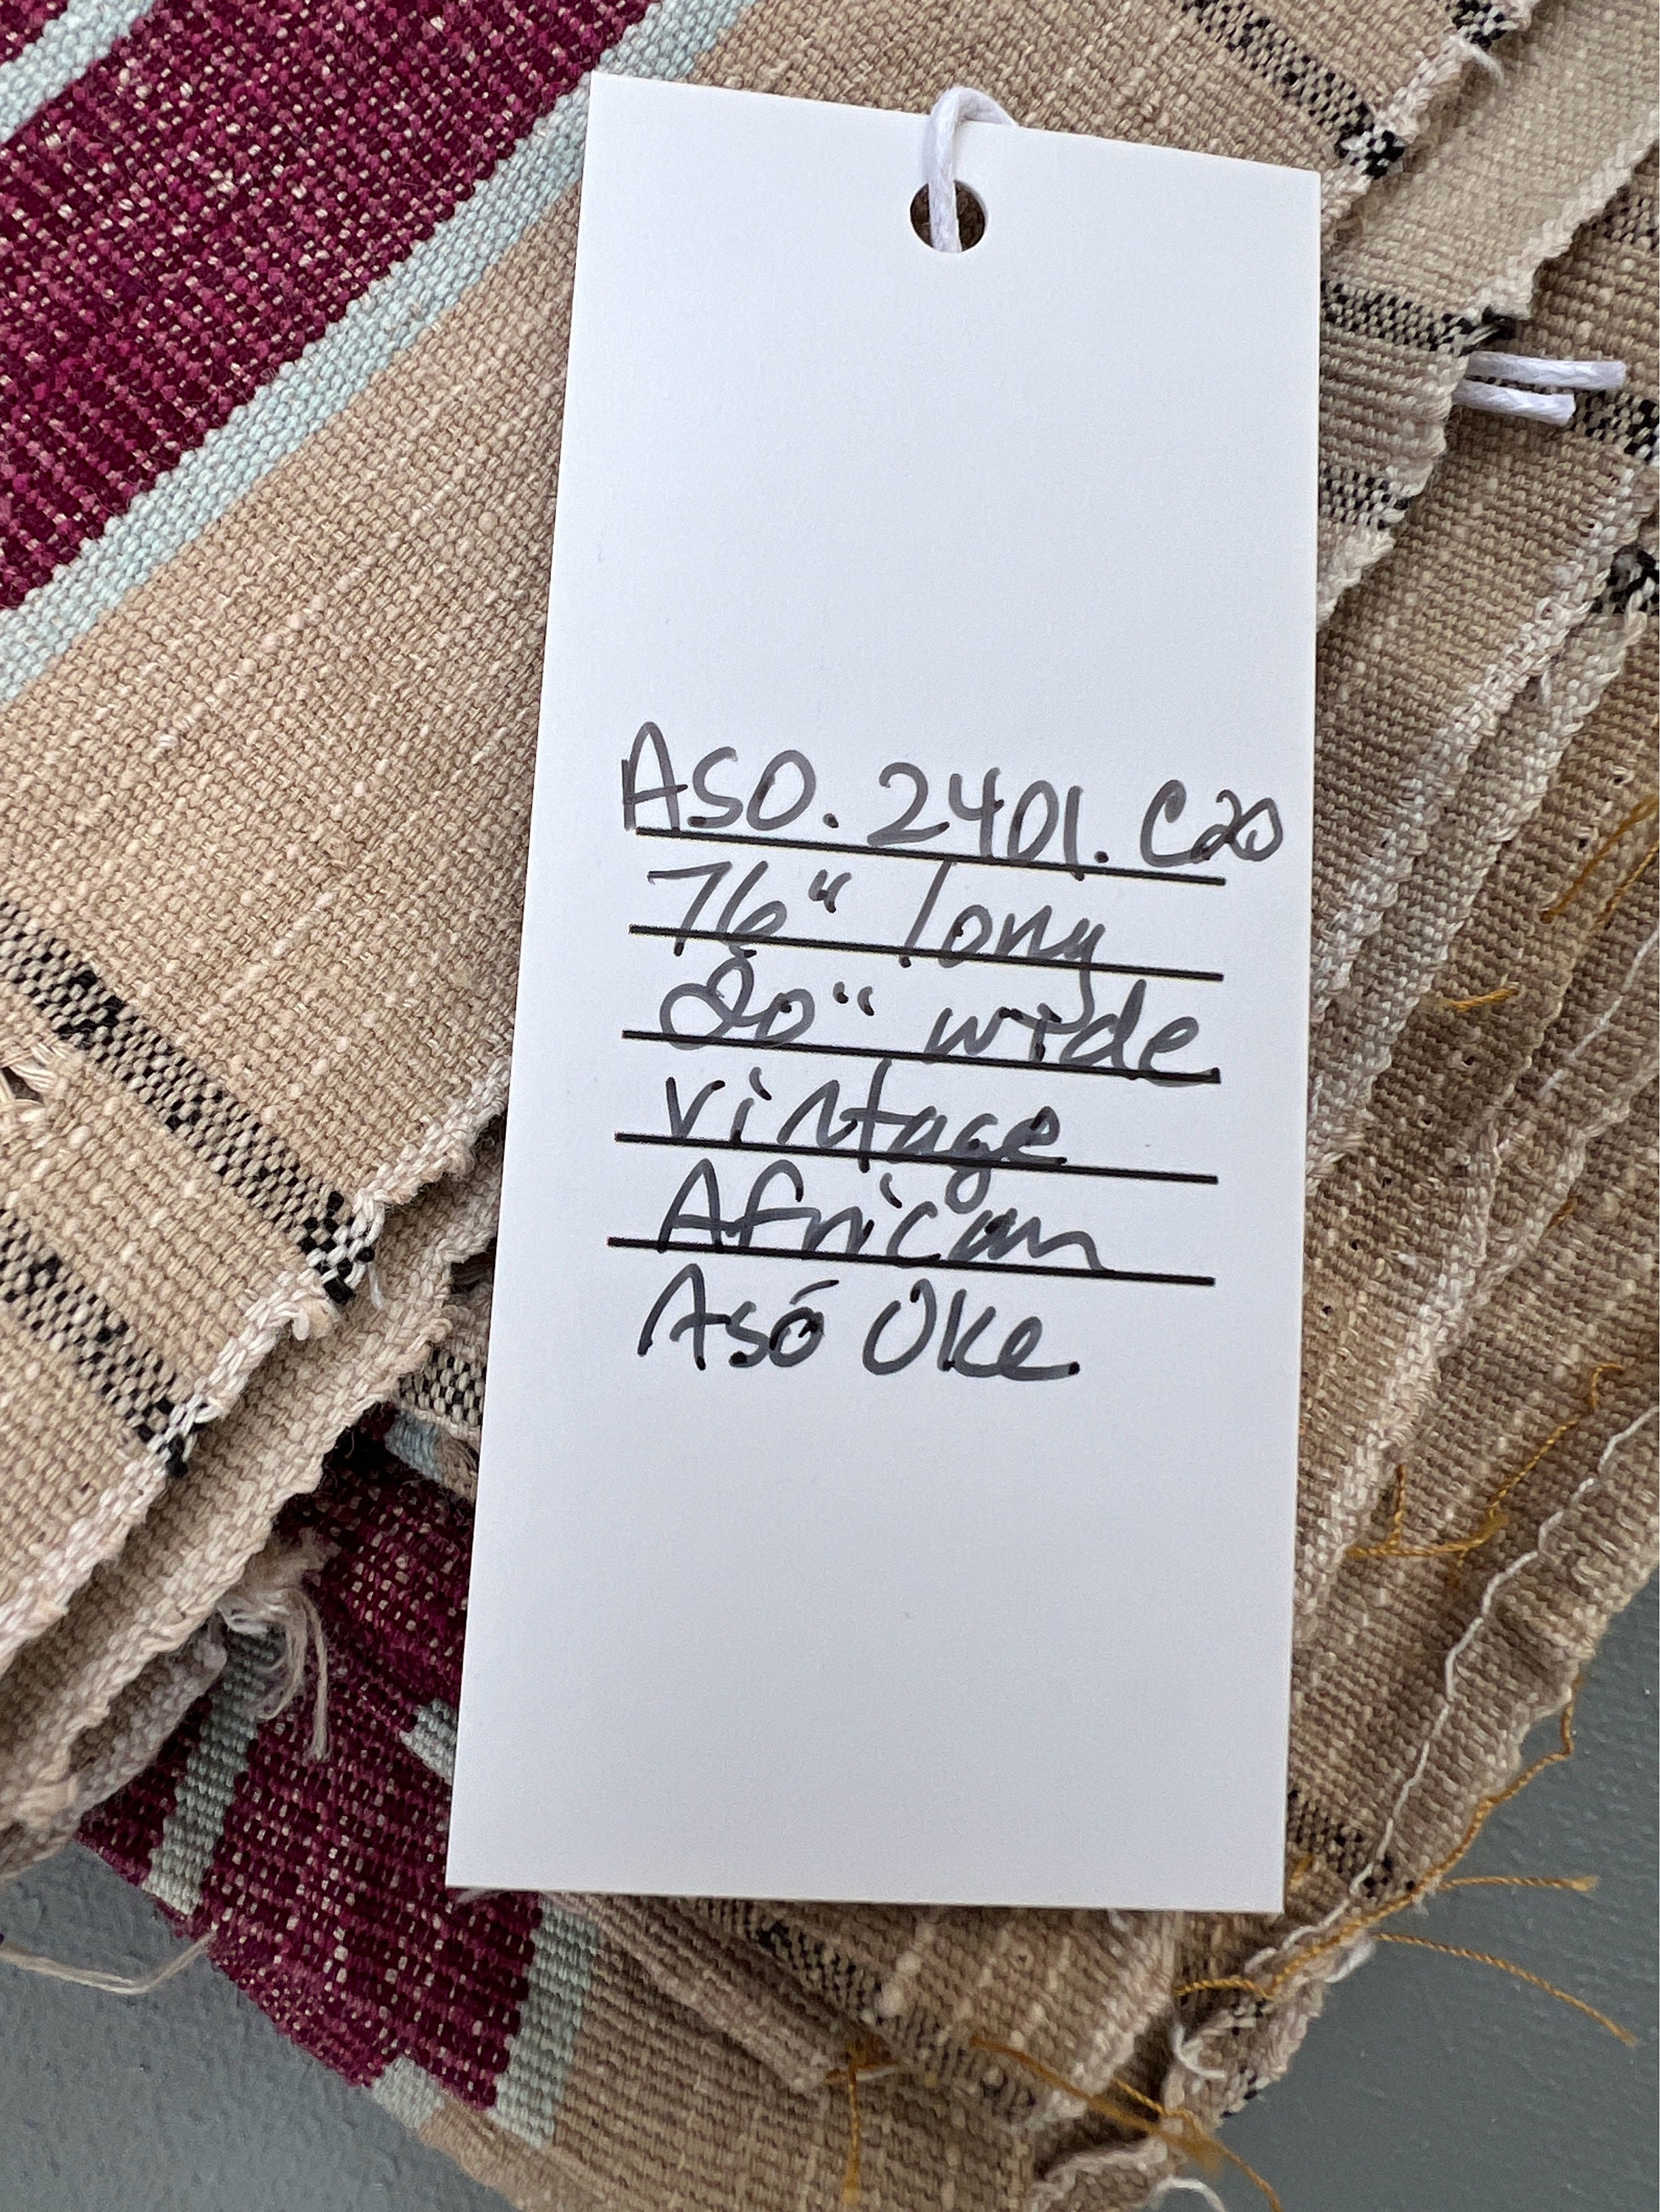 ASO. 2401. C20
76" long
80" wide
vintage
African
Asó Oke